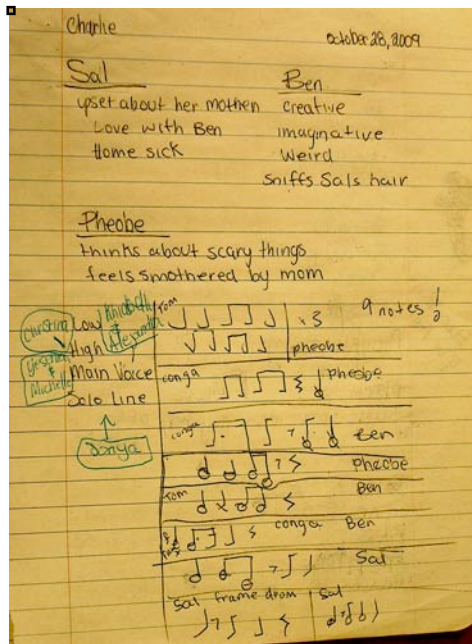 Charlie
october 28, 2009
Sal
upset about her mother
Love with Ben
Home sick
Ben
creative
imaginative
Weird
sniffs Sals hair
Pheobe
thinks about scary things
feels smothered by mom
Christina
Low
High Alejandra
Yesenia & Michelle
Main Voice
Solo Line
Sonya
Tom
x3
9 notes!
pheobe
conga
Pheobe
conga
Ben
Pheobe
Tom
Ben
conga Ben
Sal
Sal frame drom
Sal